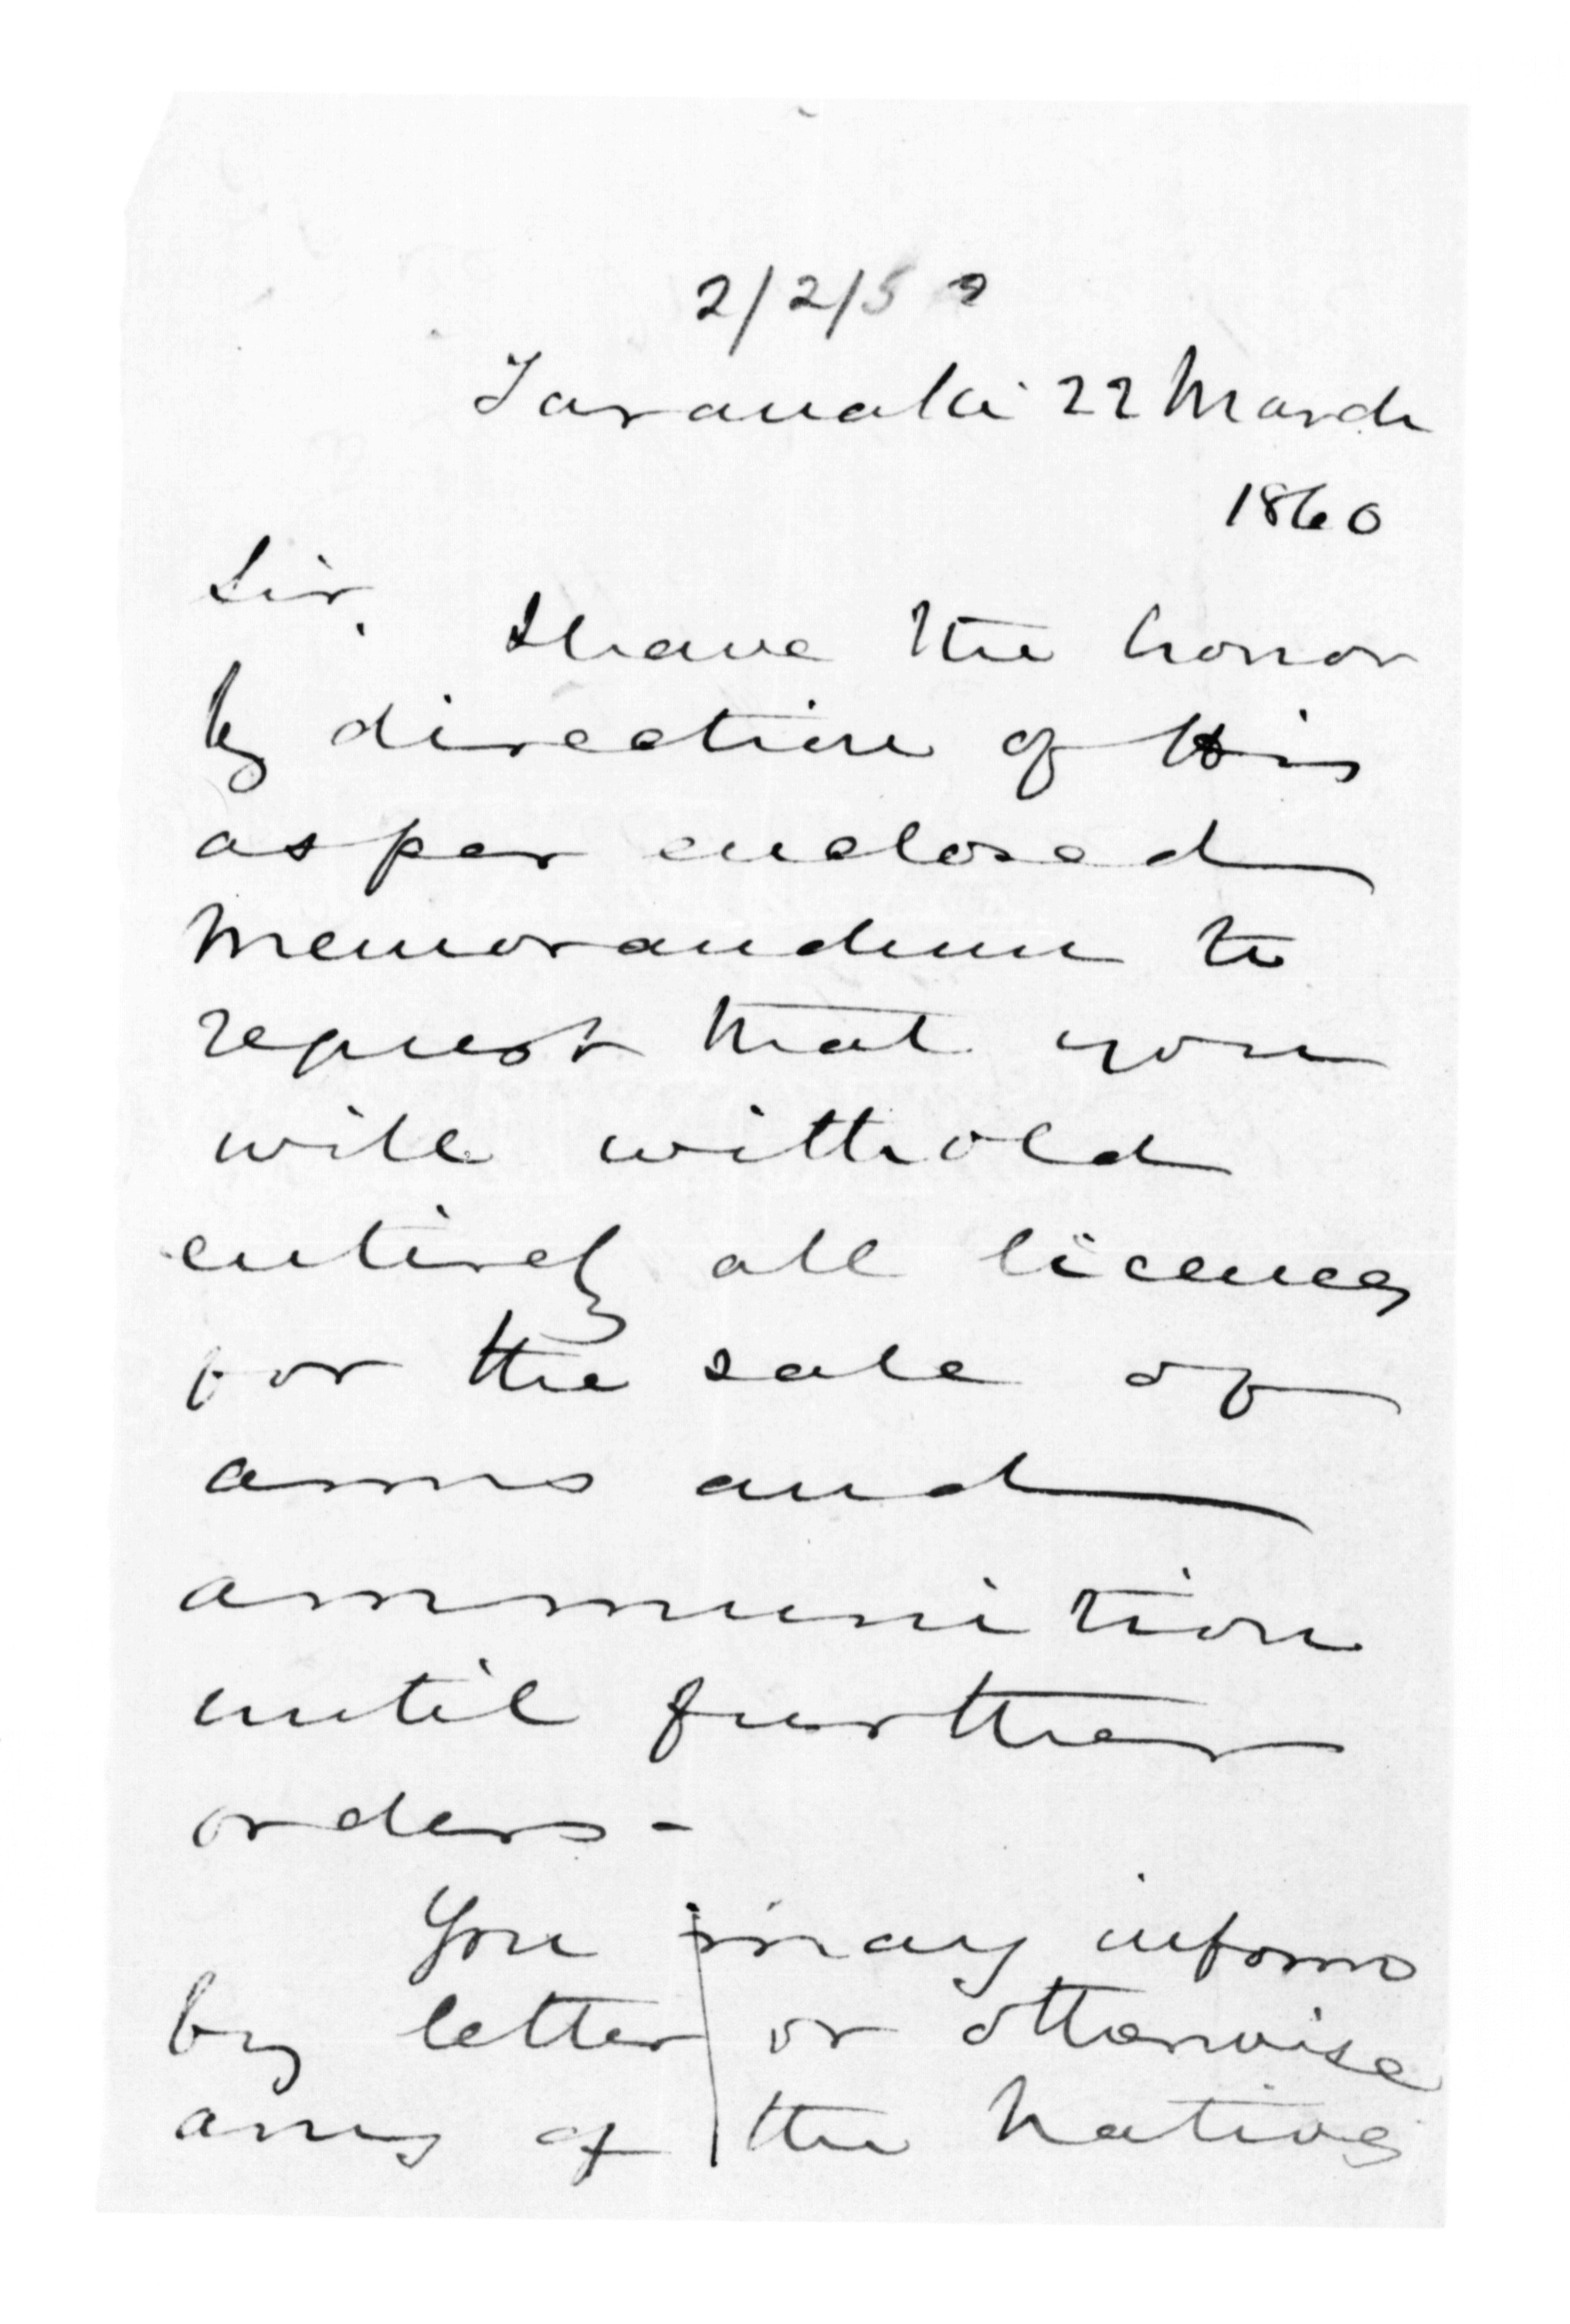 2/2/5 9
Taranaki 22 March
1860
Sir.
I have the honor
by direction of His
as per enclosed
Memorandum to
request that you
will withold
entirely all licences
for the sale of
arms and
ammunition
until further
orders -
You may inform
by letter or otherwise
any of the Natives